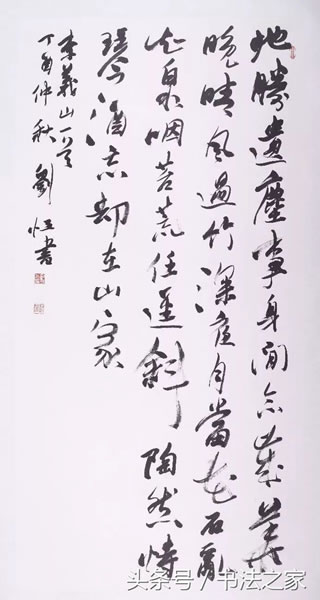 地勝遺塵事身閒念歲華
晚晴風過竹深夜月當花石亂
知泉咽苔荒任逕斜陶然恃
琴酒忘却在山家
李義山一首
丁酉仲秋劉恒書
头条号 / 书法之家